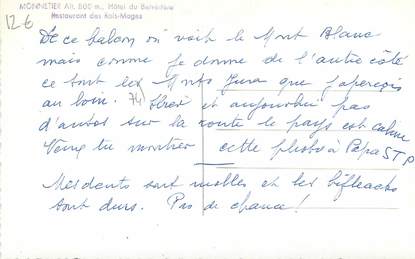 MONNETIER Alt. 800 m., Hôtel du Belvédère
Restaurant des Rois-Mages
12 €
De ce balcon on voit le Mont Blanc
mais comme je donne de l'autre côté
ce sont les Monts Jura que j'aperçois
au loin. 74) et aujourd'hui pas
d'autos sur la route le pays est calme
tu montrer cette photo à Papa STP
Mes dents sont molles et les biftecks
sont durs. Pas de chance !